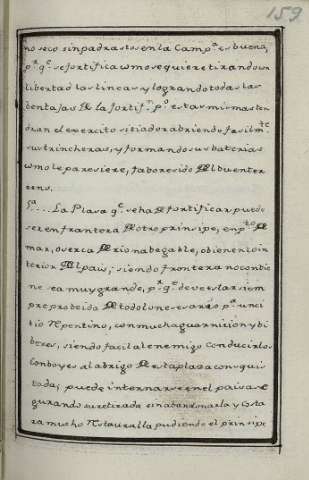 159
no seco sin padrastos en la Camp.ª es buena,
p.r q.e se fortifica como se quiere tirando con
libertad las lineas y logrando todas las
bentajas de la fortif.n p.o estas mismas ten
dran el exercito sitiador abriendo facilm.te
sus trincheras, y formando sus baterias
como le paresiere, faboresido del buen ter
reno.
5.ª .... La Plasa q.e se ha de fortificar puede
ser en frontera de otro prinsipe, en p.to de
mar, o serca de rio nabegable, o bien en lo in
terior del pais; siendo frontera no combie
ne sea muy grande, p.r q.e deve estar siem
pre probeida de todo lo nesesario p.ª un ci
tio repentino, con mucha guarnizion y bi
beres, siendo facil al enemigo conducir los
comboyes al abrigo de esta plasa conquis
tada, puede internarse en el pais ase
gurando su retirada sin abandonarla y costa
ra mucho restauralla pudiendo el prinsipe